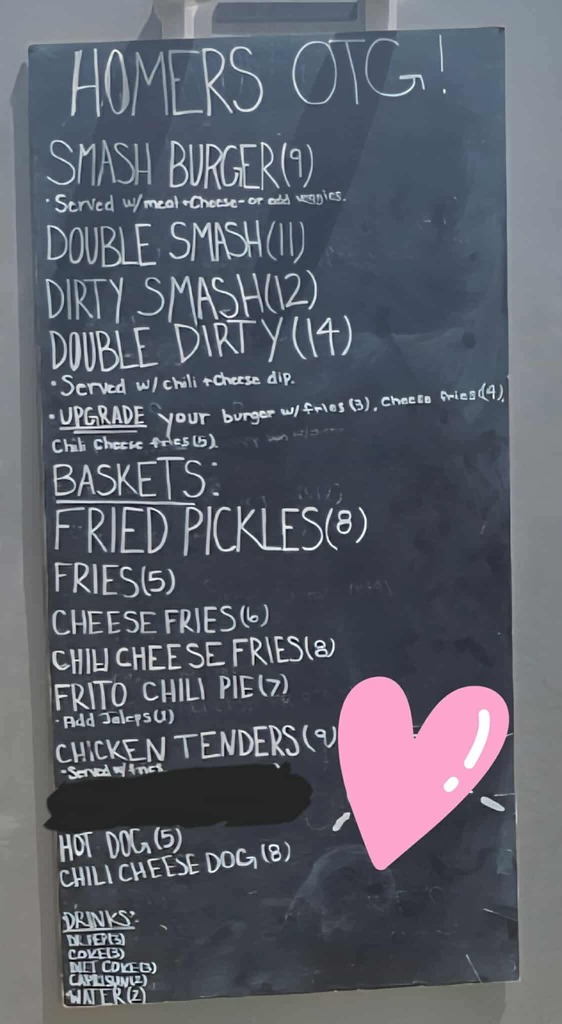 HOMERS OTG!
SMASH BURGER(9)
• Served w/meat + Cheese - or add veggies.
DOUBLE SMASH(11)
DIRTY SMASH(12)
DOUBLE DIRTY(14)
• Served w/ chili + cheese dip.
• UPGRADE your burger w/ fries (3), cheese fries (4),
Chili Cheese fries (5).
BASKETS:
FRIED PICKLES(8)
FRIES(5)
CHEESE FRIES(6)
CHILI CHEESE FRIES(8)
FRITO CHILI PIE(7)
• Add Jaleps(1)
CHICKEN TENDERS(9)
• Served w/ fries
HOT DOG(5)
CHILI CHEESE DOG(8)
DRINKS:
DR.PEP(3)
COKE(3)
DIET COKE(3)
CAPRISUN(2)
WATER(2)